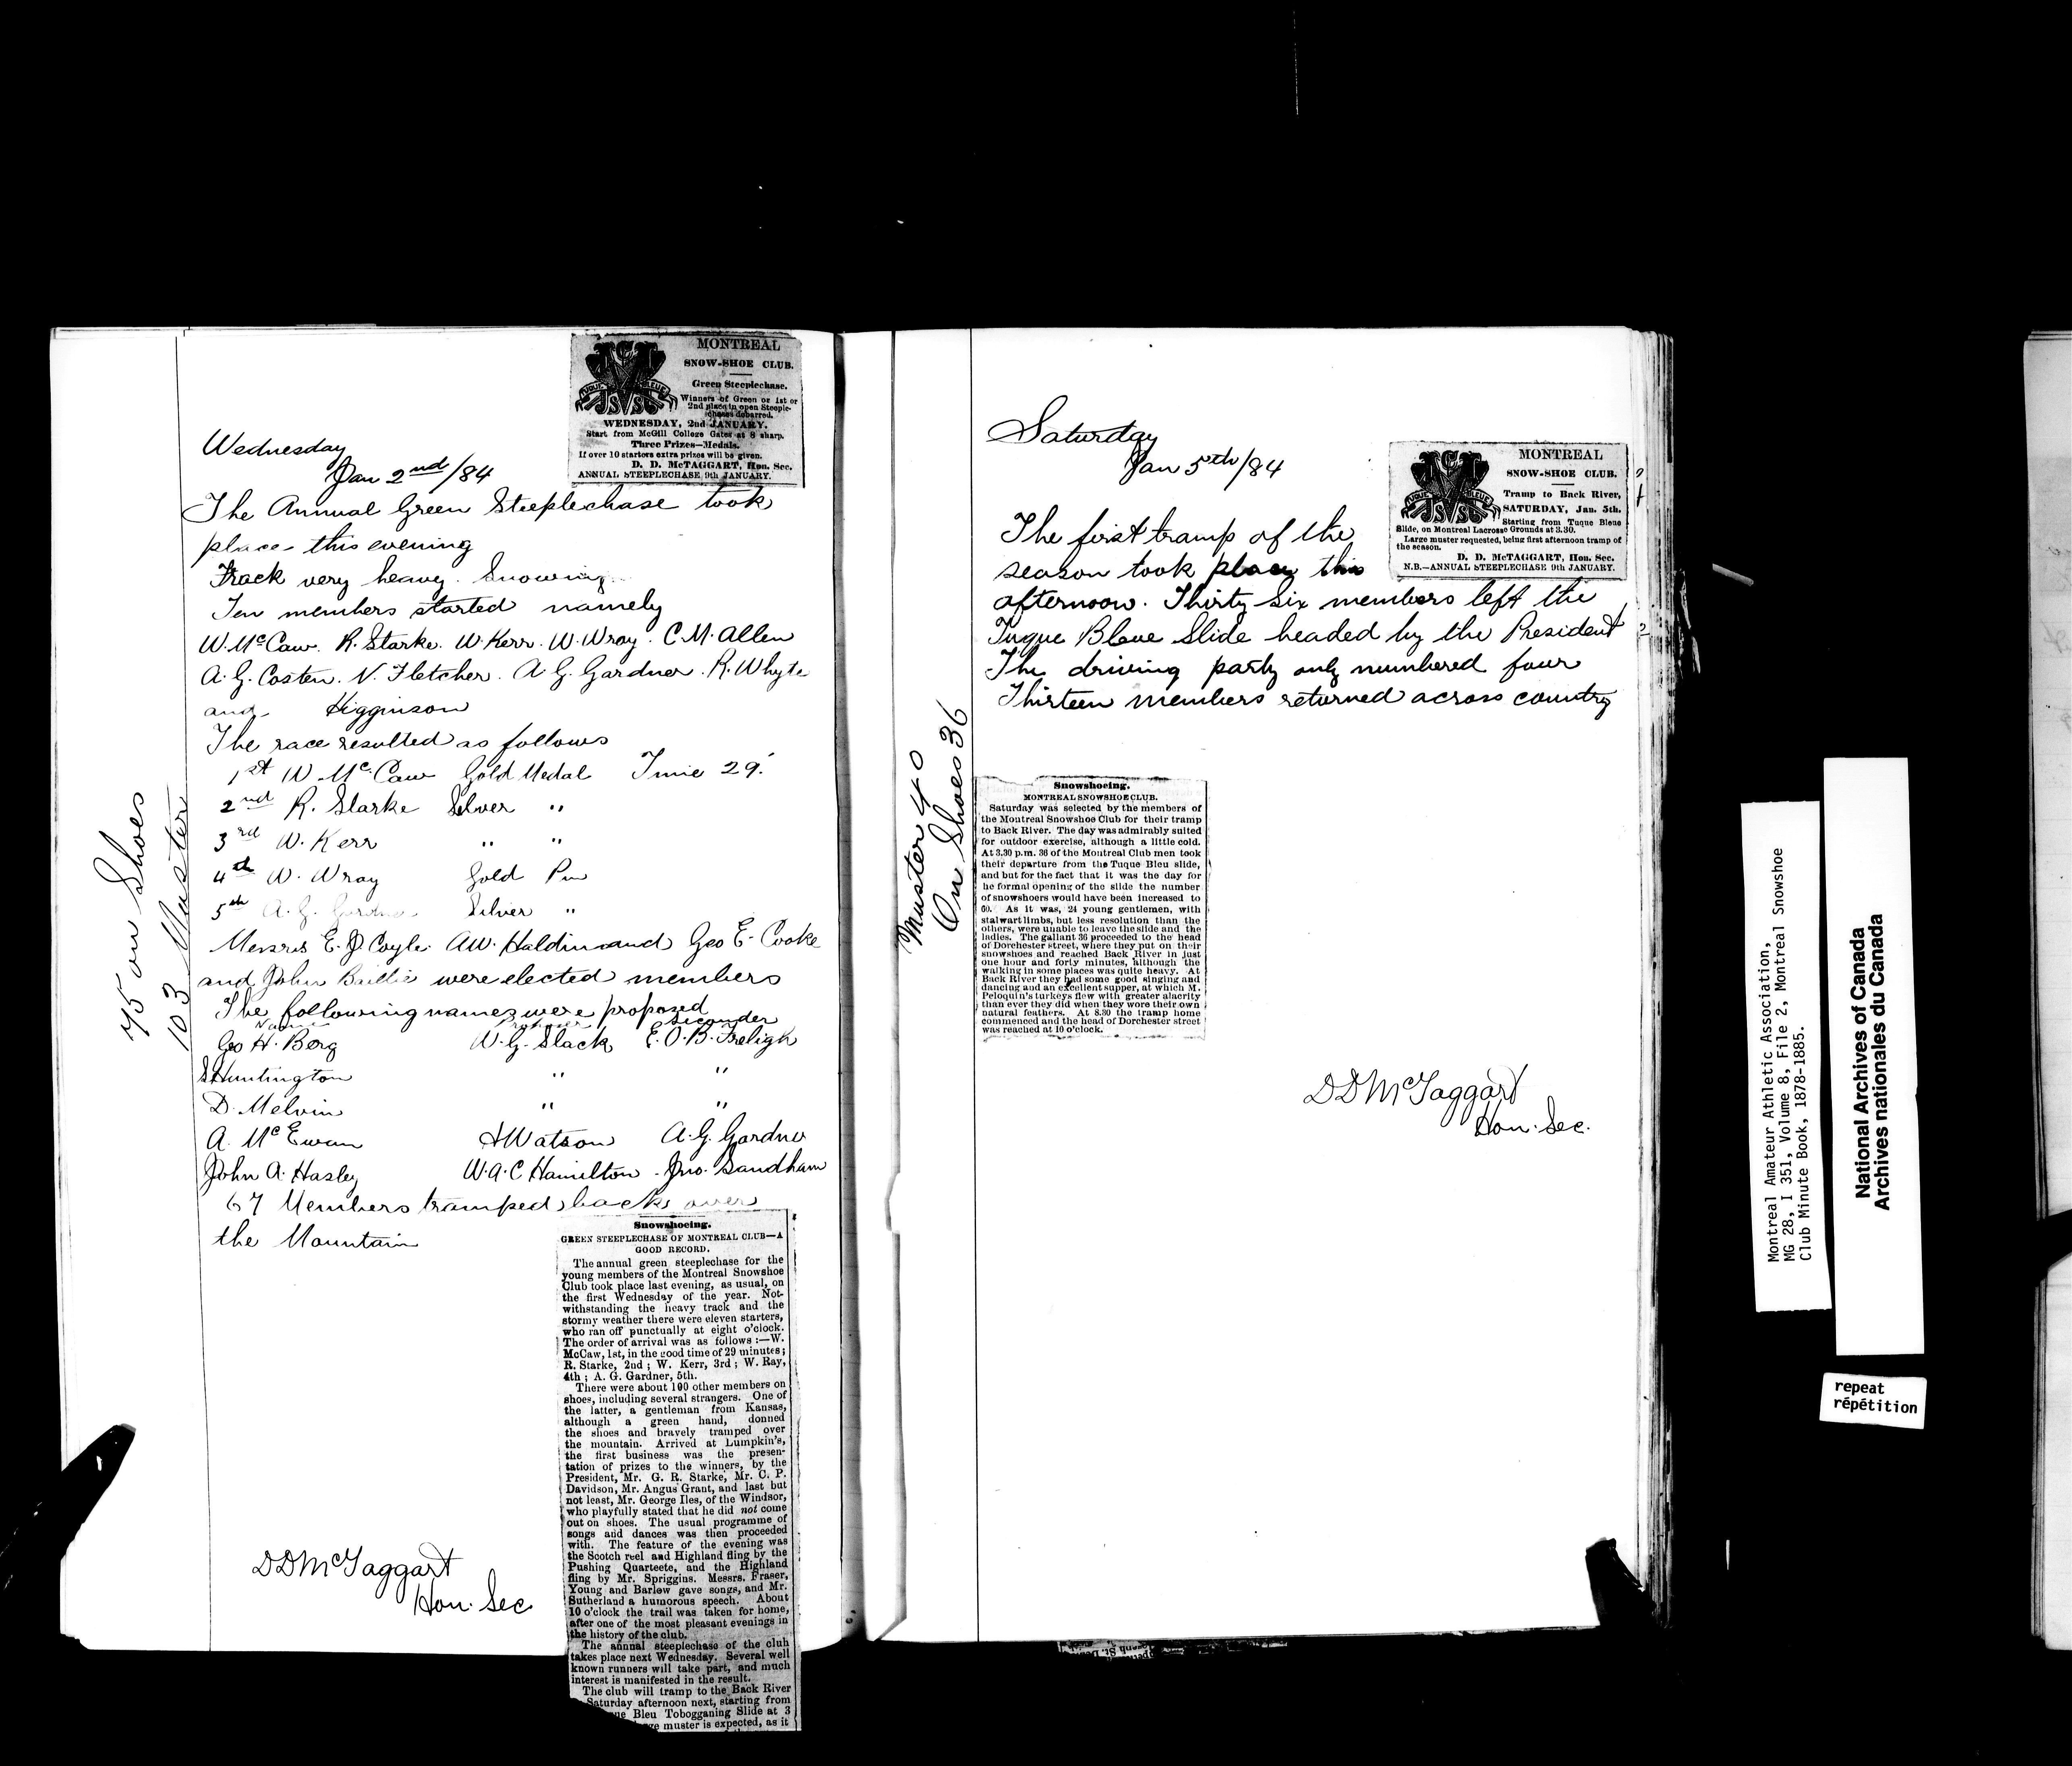 MONTREAL
SNOW-SHOE CLUB.
Green Steeplechase.
Winners of Green or 1st or
2nd place in open Steeple-
chases debarred.
TUQUE BLEUE
WEDNESDAY, 2nd JANUARY.
Start from McGill College Gates at 8 sharp.
Three Prizes—Medals.
If over 10 starters extra prizes will be given.
D. D. McTAGGART, Hon. Sec.
ANNUAL STEEPLECHASE 9th JANUARY.
Wednesday
Jan 2nd/84
The Annual Green Steeplechase took
place this evening
Track very heavy. Snowing
Ten members started namely
W. McCaw. R. Starke. W. Kerr. W. Wray. C. M. Allen
A. G. Costen. N. Fletcher. A. G. Gardner. R. Whyte
and - Higginson
The race resulted as follows
1st W. McCaw Gold Medal Time 29.
2nd R. Starke Silver "
3rd W. Kerr " "
4th W. Wray Gold Pin
5th A. G. Gardner Silver "
Messrs E. J. Coyle. A W. Haldimand Geo E. Cooke
and John Baillie were elected members
The following names were proposed
Name Proposer Seconder
Geo H. Berg W. G. Slack E. O. B. Freligh
S Huntington " "
D. Melvin " "
A. McEwan H Watson A. G. Gardner
John A. Hasley W. A. C Hamilton - Jno. Sandham
67 Members tramped back over
the Mountain
75 on Shoes
103 Muster
Snowshoeing.
GREEN STEEPLECHASE OF MONTREAL CLUB—A
GOOD RECORD.
The annual green steeplechase for the
young members of the Montreal Snowshoe
Club took place last evening, as usual, on
the first Wednesday of the year. Not-
withstanding the heavy track and the
stormy weather there were eleven starters,
who ran off punctually at eight o'clock.
The order of arrival was as follows :—W.
McCaw, 1st, in the good time of 29 minutes ;
R. Starke, 2nd ; W. Kerr, 3rd ; W. Ray,
4th ; A. G. Gardner, 5th.
There were about 100 other members on
shoes, including several strangers. One of
the latter, a gentleman from Kansas,
although a green hand, donned
the shoes and bravely tramped over
the mountain. Arrived at Lumpkin's,
the first business was the presen-
tation of prizes to the winners, by the
President, Mr. G. R. Starke, Mr. C. P.
Davidson, Mr. Angus Grant, and last but
not least, Mr. George Iles, of the Windsor,
who playfully stated that he did not come
out on shoes. The usual programme of
songs and dances was then proceeded
with. The feature of the evening was
the Scotch reel and Highland fling by the
Pushing Quarteete, and the Highland
fling by Mr. Spriggins. Messrs. Fraser,
Young and Barlow gave songs, and Mr.
Sutherland a humorous speech. About
10 o'clock the trail was taken for home,
after one of the most pleasant evenings in
the history of the club.
The annual steeplechase of the club
takes place next Wednesday. Several well
known runners will take part, and much
interest is manifested in the result.
The club will tramp to the Back River
Saturday afternoon next, starting from
Bleu Tobogganing Slide at 3
muster is expected, as it
DDMcTaggart
Hon. Sec
Saturday
Jan 5th/84
MONTREAL
SNOW-SHOE CLUB.
Tramp to Back River,
SATURDAY, Jan. 5th.
TUQUE BLEUE
Starting from Tuque Bleue
Slide, on Montreal Lacrosse Grounds at 3.30.
Large muster requested, being first afternoon tramp of
the season.
D. D. McTAGGART, Hon. Sec.
N.B.—ANNUAL STEEPLECHASE 9th JANUARY.
The first tramp of the
season took place this
afternoon. Thirty six members left the
Tuque Bleue Slide headed by the President
The driving party only numbered four
Thirteen members returned across country
Muster 40
On Shoes 36
Snowshoeing.
MONTREAL SNOWSHOE CLUB.
Saturday was selected by the members of
the Montreal Snowshoe Club for their tramp
to Back River. The day was admirably suited
for outdoor exercise, although a little cold.
At 3.30 p.m. 36 of the Montreal Club men took
their departure from the Tuque Bleu slide,
and but for the fact that it was the day for
he formal opening of the slide the number
of snowshoers would have been increased to
60. As it was, 24 young gentlemen, with
stalwart limbs, but less resolution than the
others, were unable to leave the slide and the
ladies. The gallant 36 proceeded to the head
of Dorchester street, where they put on their
snowshoes and reached Back River in just
one hour and forty minutes, although the
walking in some places was quite heavy. At
Back River they had some good singing and
dancing and an excellent supper, at which M.
Peloquin's turkeys flew with greater alacrity
than ever they did when they wore their own
natural feathers. At 8.30 the tramp home
commenced and the head of Dorchester street
was reached at 10 o'clock.
DDMcTaggart
Hon. Sec.
Montreal Amateur Athletic Association,
MG 28, I 351, Volume 8, File 2, Montreal Snowshoe
Club Minute Book, 1878-1885.
National Archives of Canada
Archives nationales du Canada
repeat
répétition